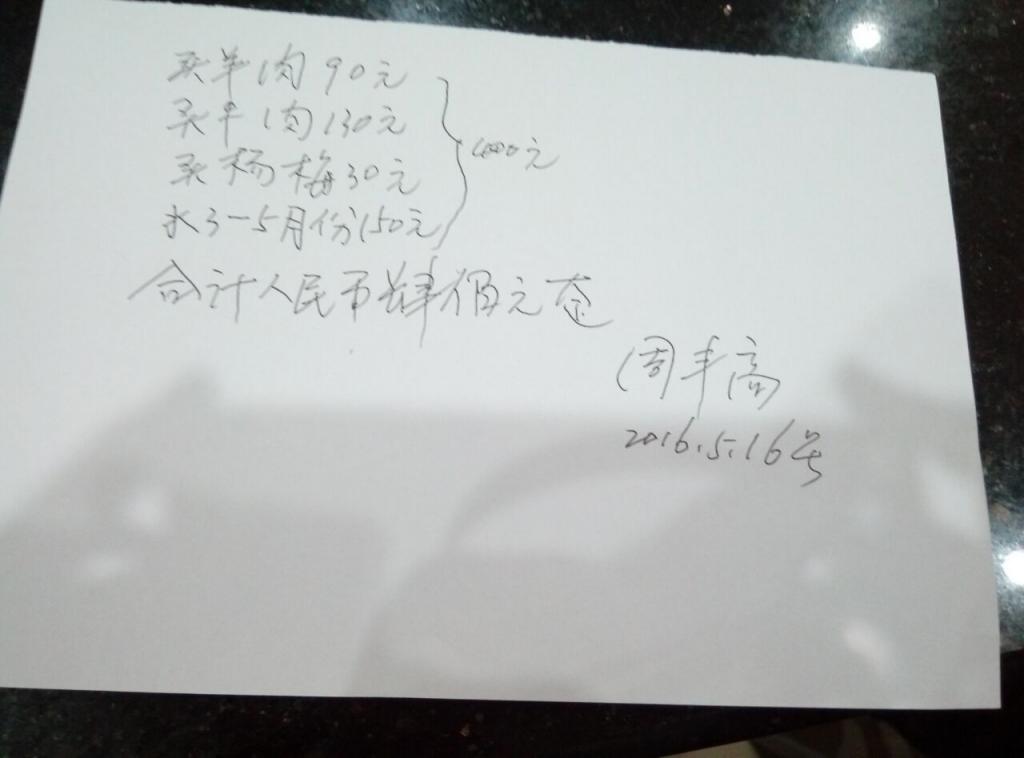 买羊肉90元
买牛肉130元
买杨梅30元
水3-5月份150元
400元
合计人民币肆佰元整
周丰高
2016.5.16号